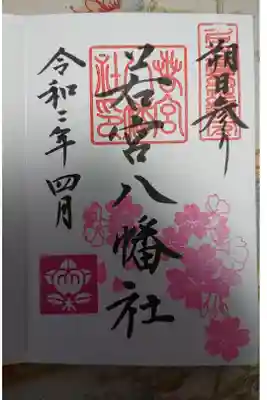 朔日参り
若宮八幡社
令和二年四月